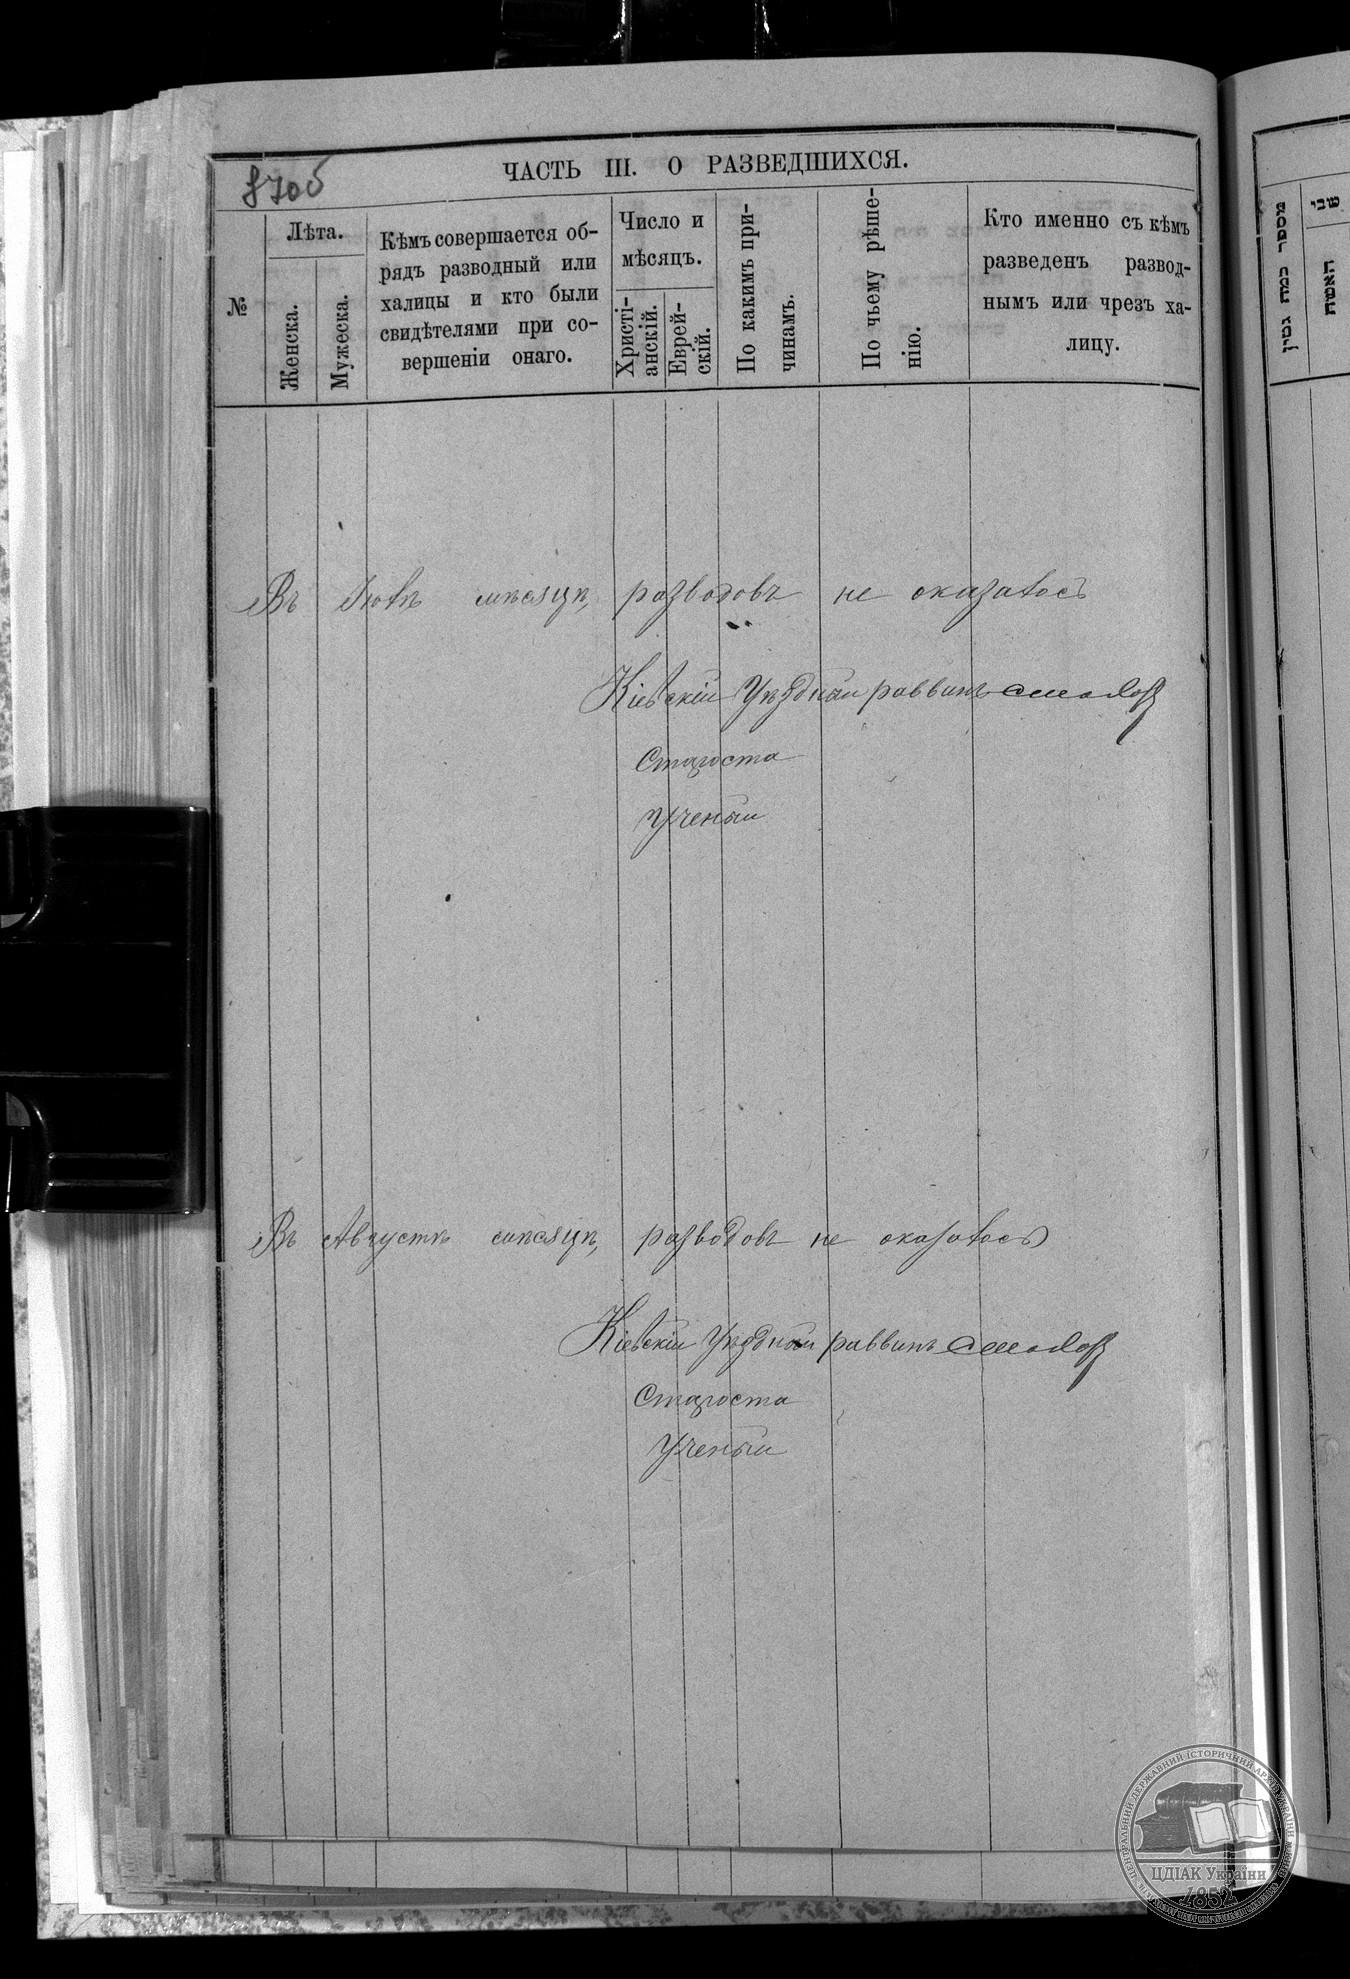 870б
ЧАСТЬ III. О РАЗВЕДШИХСЯ.
№
Лѣта.
Женска.
Мужеска.
Кѣмъ совершается об-
рядъ разводный или
халицы и кто были
свидѣтелями при со-
вершеніи онаго.
Число и
мѣсяцъ.
Христі-
анскій.
Еврей-
скій.
По какимъ при-
чинамъ.
По чьему рѣше-
нію.
Кто именно съ кѣмъ
разведенъ развод-
нымъ или чрезъ ха-
лицу.
מספר כמה גטין
האשה
שני
Въ Іюлѣ мѣсяцѣ, разводовъ не оказалось
Кіевскій Уѣздный раввинъ
Староста
Ученый
Въ Августѣ мѣсяцѣ, разводовъ не оказалось
Кіевскій Уѣздный раввинъ
Староста
Ученый
ЦЕНТРАЛЬНИЙ ДЕРЖАВНИЙ ІСТОРИЧНИЙ АРХІВ УКРАЇНИ
ЦДІАК України
1852